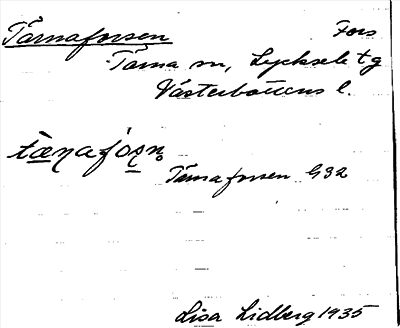 Tärnaforsen Fors
Tärna sn, Lycksele tg
Västerbottens l.
tæṇafo̱ṣṇ̥
Tärnaforsen G32
Lisa Lidberg 1935